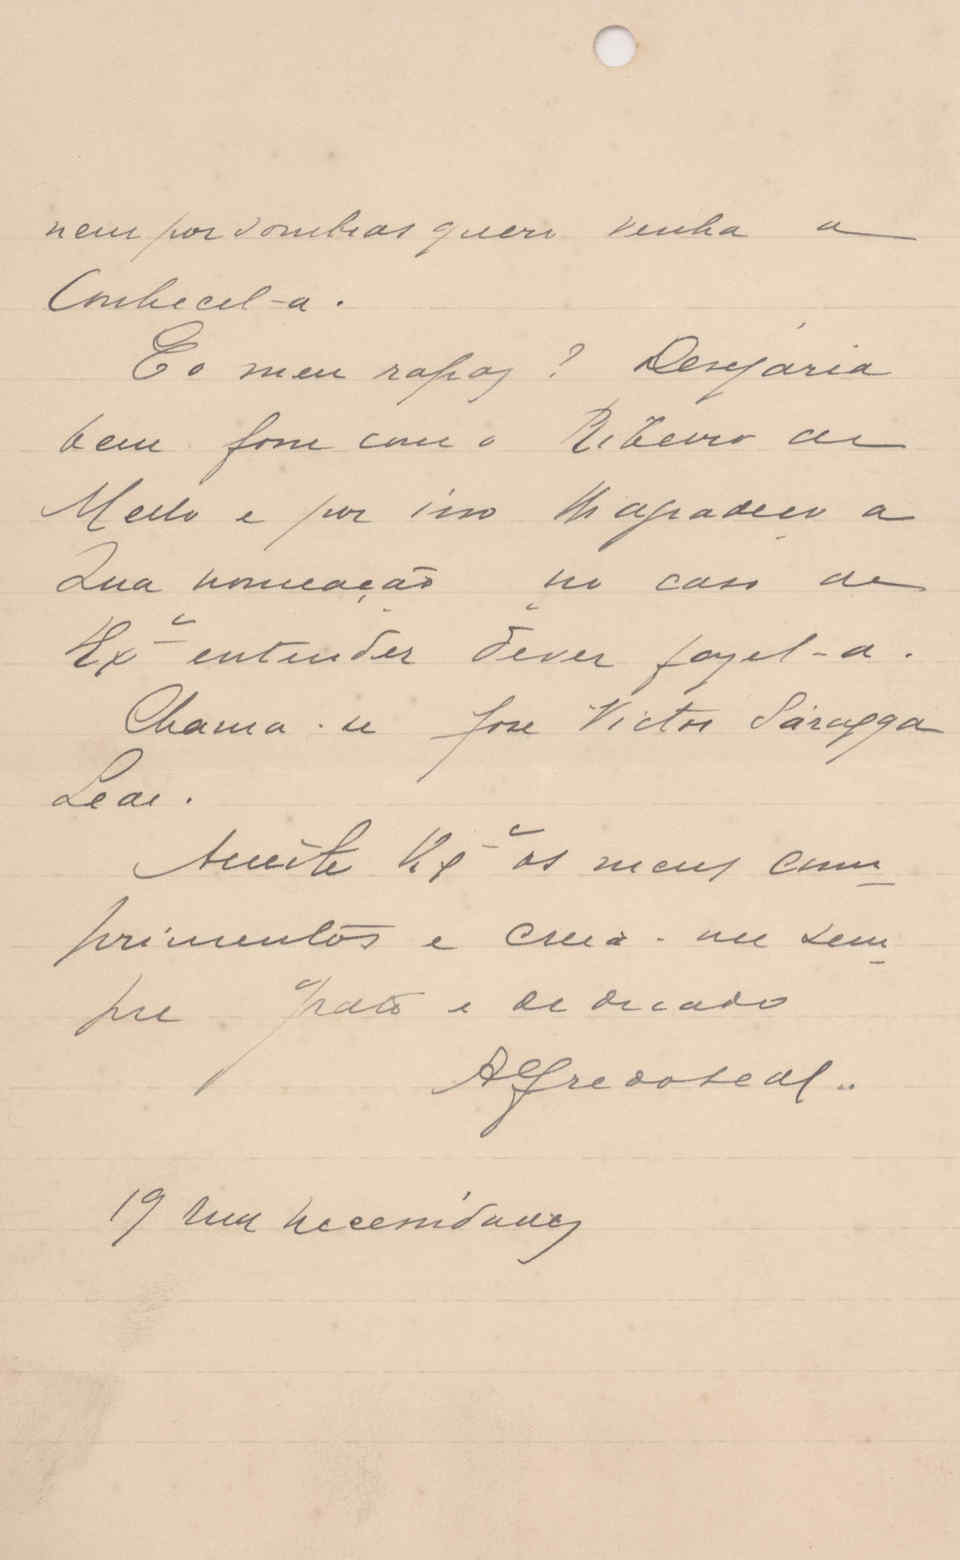 nem por sombras quero venha a
Conhecel-a.
E o meu rapaz? Desejaria
bem fosse com o Ribeiro de
Mello e por isso lh'agradeço a
sua nomeação no caso de
V. Exª entender dever fazel-a.
Chama-se José Victor Saragga
Leal.
Acceite V. Exª os meus com
primentos e creia-me sem
pre grato e dedicado
Alfredo Leal..
19 Rua Necessidades